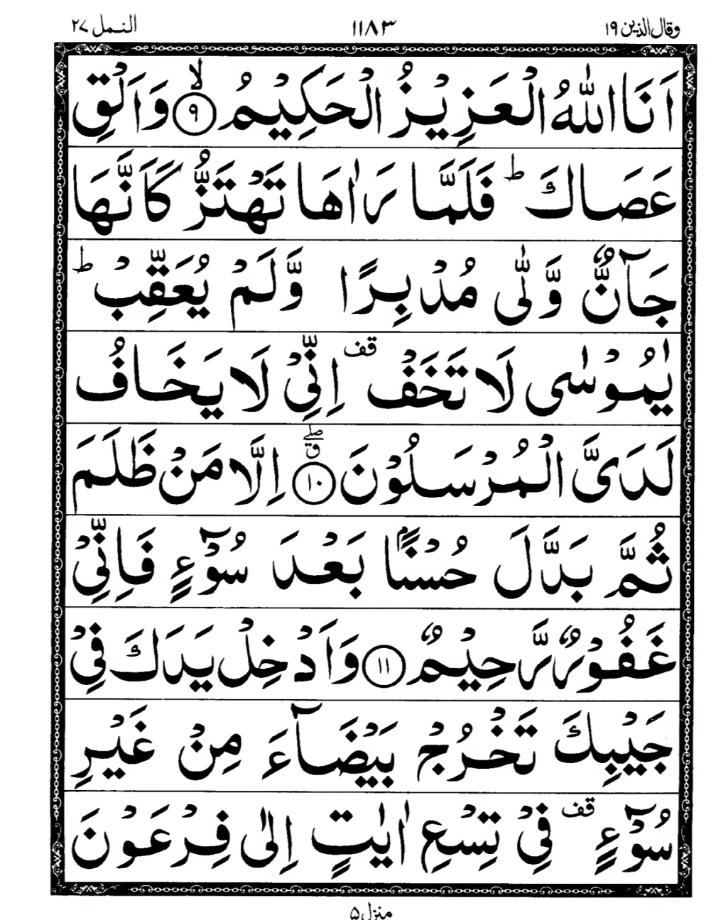 وقال الذین ۱۹ ۱۱۸۳ النمل ۲۷
اَنَا اللّٰهُ الْعَزِیْزُ الْحَكِیْمُ ۙ﴿۹﴾ وَ اَلْقِ
عَصَاكَ ؕ فَلَمَّا رَاٰهَا تَهْتَزُّ كَاَنَّهَا
جَآنٌّ وَّلّٰی مُدْبِرًا وَّ لَمْ یُعَقِّبْ ؕ
یٰمُوْسٰی لَا تَخَفْ قف اِنِّیْ لَا یَخَافُ
لَدَیَّ الْمُرْسَلُوْنَ ۖق﴿۱۰﴾ اِلَّا مَنْ ظَلَمَ
ثُمَّ بَدَّلَ حُسْنًۢا بَعْدَ سُوْٓءٍ فَاِنِّیْ
غَفُوْرٌ رَّحِیْمٌ ﴿۱۱﴾ وَ اَدْخِلْ یَدَكَ فِیْ
جَیْبِكَ تَخْرُجْ بَیْضَآءَ مِنْ غَیْرِ
سُوْٓءٍ قف فِیْ تِسْعِ اٰیٰتٍ اِلٰی فِرْعَوْنَ
منزل ۵